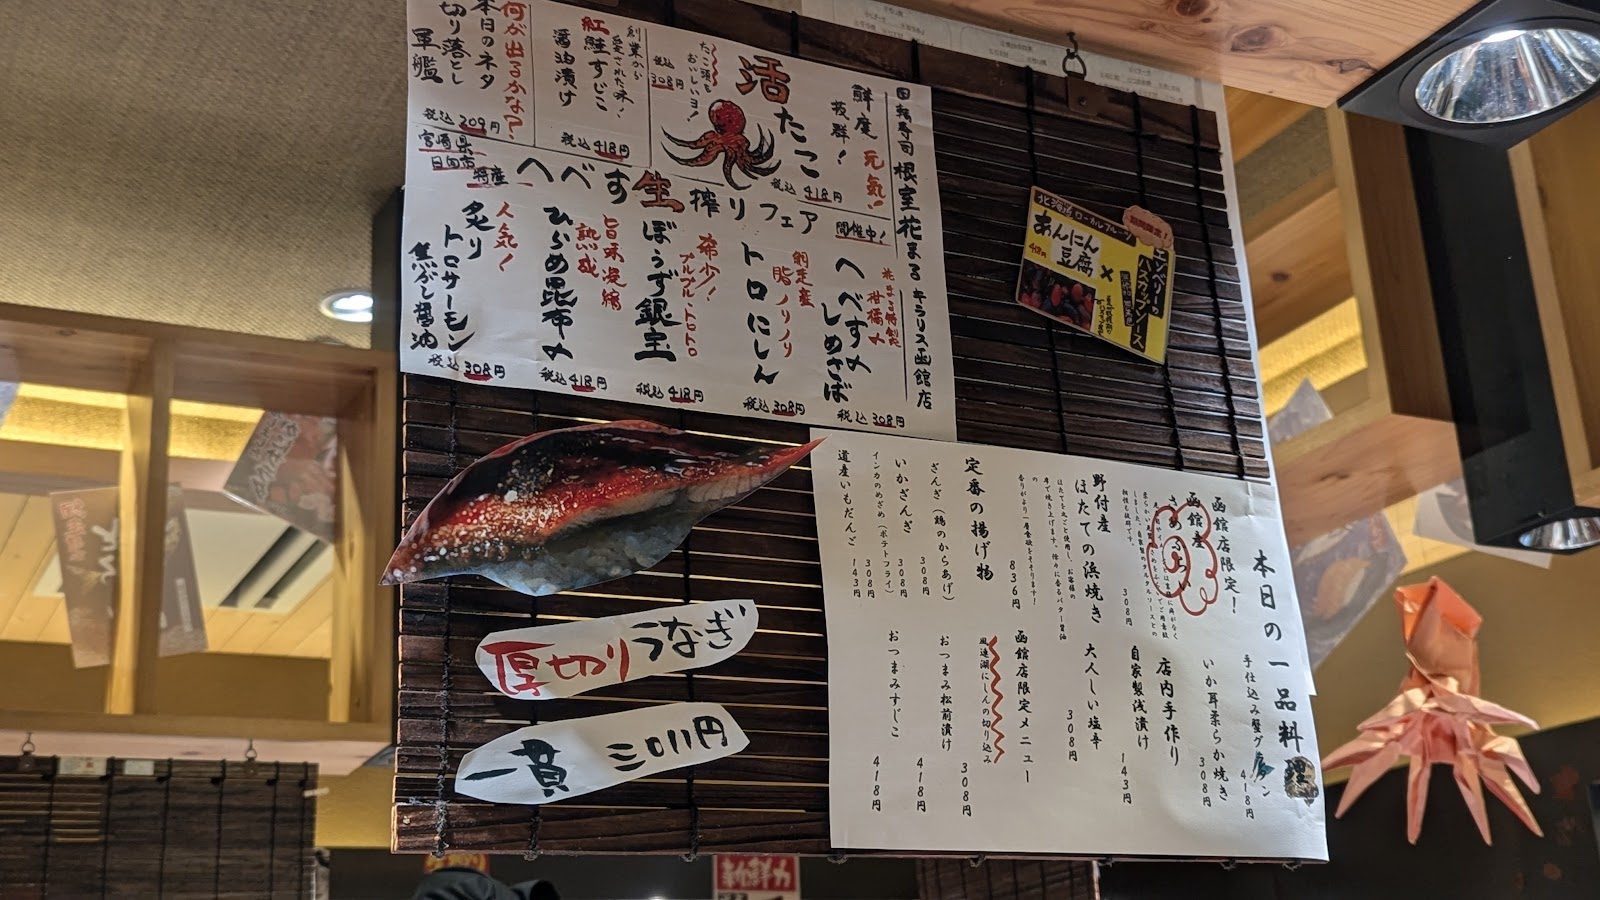 回転寿司 根室花まる キラリス函館店
鮮度抜群!
元気!
活たこ
税込418円
たこ頭も
おいしいヨ!
税込308円
創業から
愛された味、
紅鮭すじこ
醤油漬け
税込418円
何が出るかな?
本日のネタ
切り落とし
軍艦
税込209円
宮崎県
日向市
特産
へべす生搾りフェア
開催中!
へべす〆
しめさば
税込308円
網走産
脂ノリノリ
トロにしん
税込308円
希少!
プルプル・トロトロ
ぼうず銀宝
税込418円
旨味凝縮
熟成
ひらめ昆布〆
税込418円
人気く
炙り
トロサーモン
焦がし醤油
税込308円
北海道ローカルフルーツ
期間限定!
あんにん
豆腐
418円
×
エゾベリーの
ハスカップソース
厚切りうなぎ
一貫 三〇八円
本日の一品料理
手仕込み蟹グラタン
418円
函館店限定!
いか耳柔らか焼き
308円
函館産
308円
店内手作り
自家製浅漬け
143円
野付産
ほたての浜焼き
ほたてを丸ごと使用し、お客様の
836円
大人しい塩辛
308円
函館店限定メニュー
風連湖にしんの切り込み
308円
定番の揚げ物
ざんぎ(鶏のからあげ)
308円
おつまみ松前漬け
418円
いかざんぎ
308円
インカのめざめ(ポテトフライ)
308円
おつまみすじこ
418円
道産いもだんご
143円
新鮮力